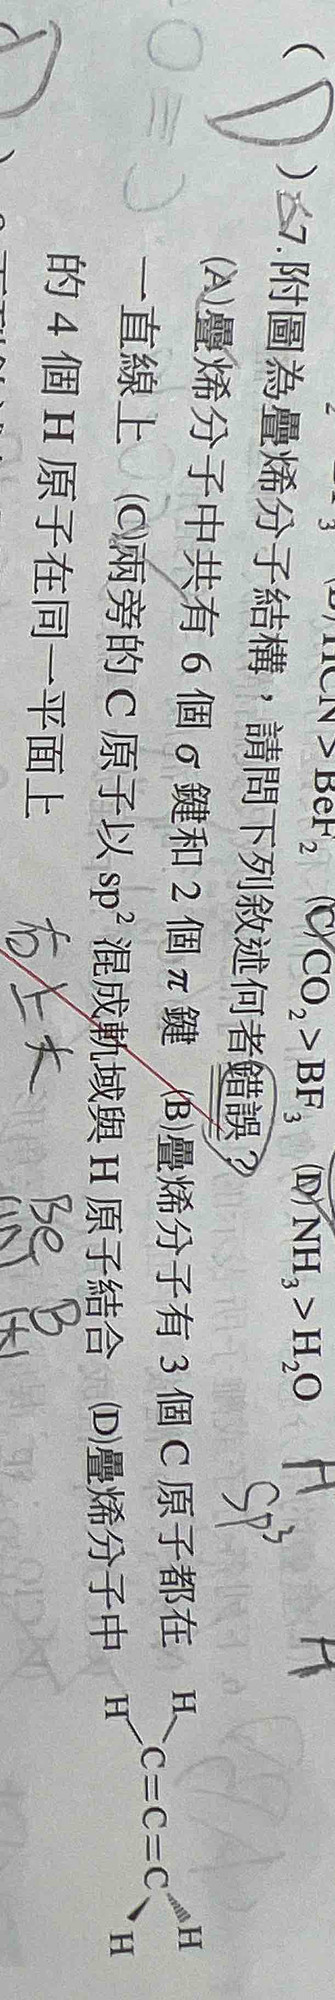 HCN > BeF₂ (C) CO₂ > BF₃ (D) NH₃ > H₂O
( D ) 7.附圖為疊烯分子結構，請問下列敘述何者錯誤？
sp³
(A)疊烯分子中共有 6 個 σ 鍵和 2 個 π 鍵 (B)疊烯分子有 3 個 C 原子都在
一直線上 (C)兩旁的 C 原子以 sp² 混成軌域與 H 原子結合 (D)疊烯分子中
的 4 個 H 原子在同一平面上
H H
C=C=C
H H
Be B